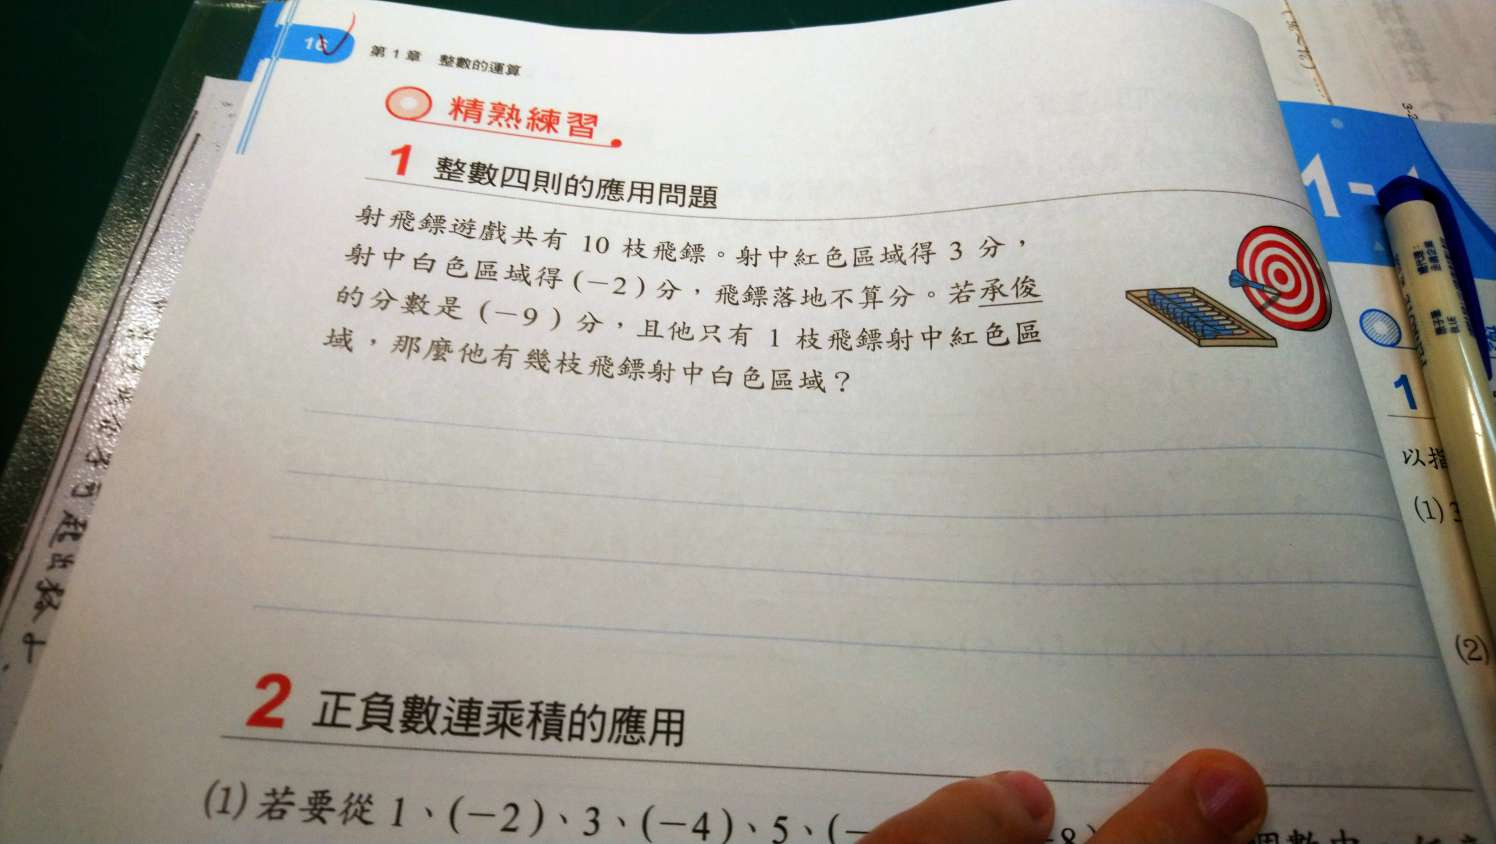 16
第 1 章 整數的運算
精熟練習
1 整數四則的應用問題
射飛鏢遊戲共有 10 枝飛鏢。射中紅色區域得 3 分，
射中白色區域得(－2)分，飛鏢落地不算分。若承俊
的分數是(－9)分，且他只有 1 枝飛鏢射中紅色區
域，那麼他有幾枝飛鏢射中白色區域？
2 正負數連乘積的應用
(1) 若要從 1、(－2)、3、(－4)、5、(－
8)
個數中，任意
1-1
1
以指
(1) 3
(2)
3-2